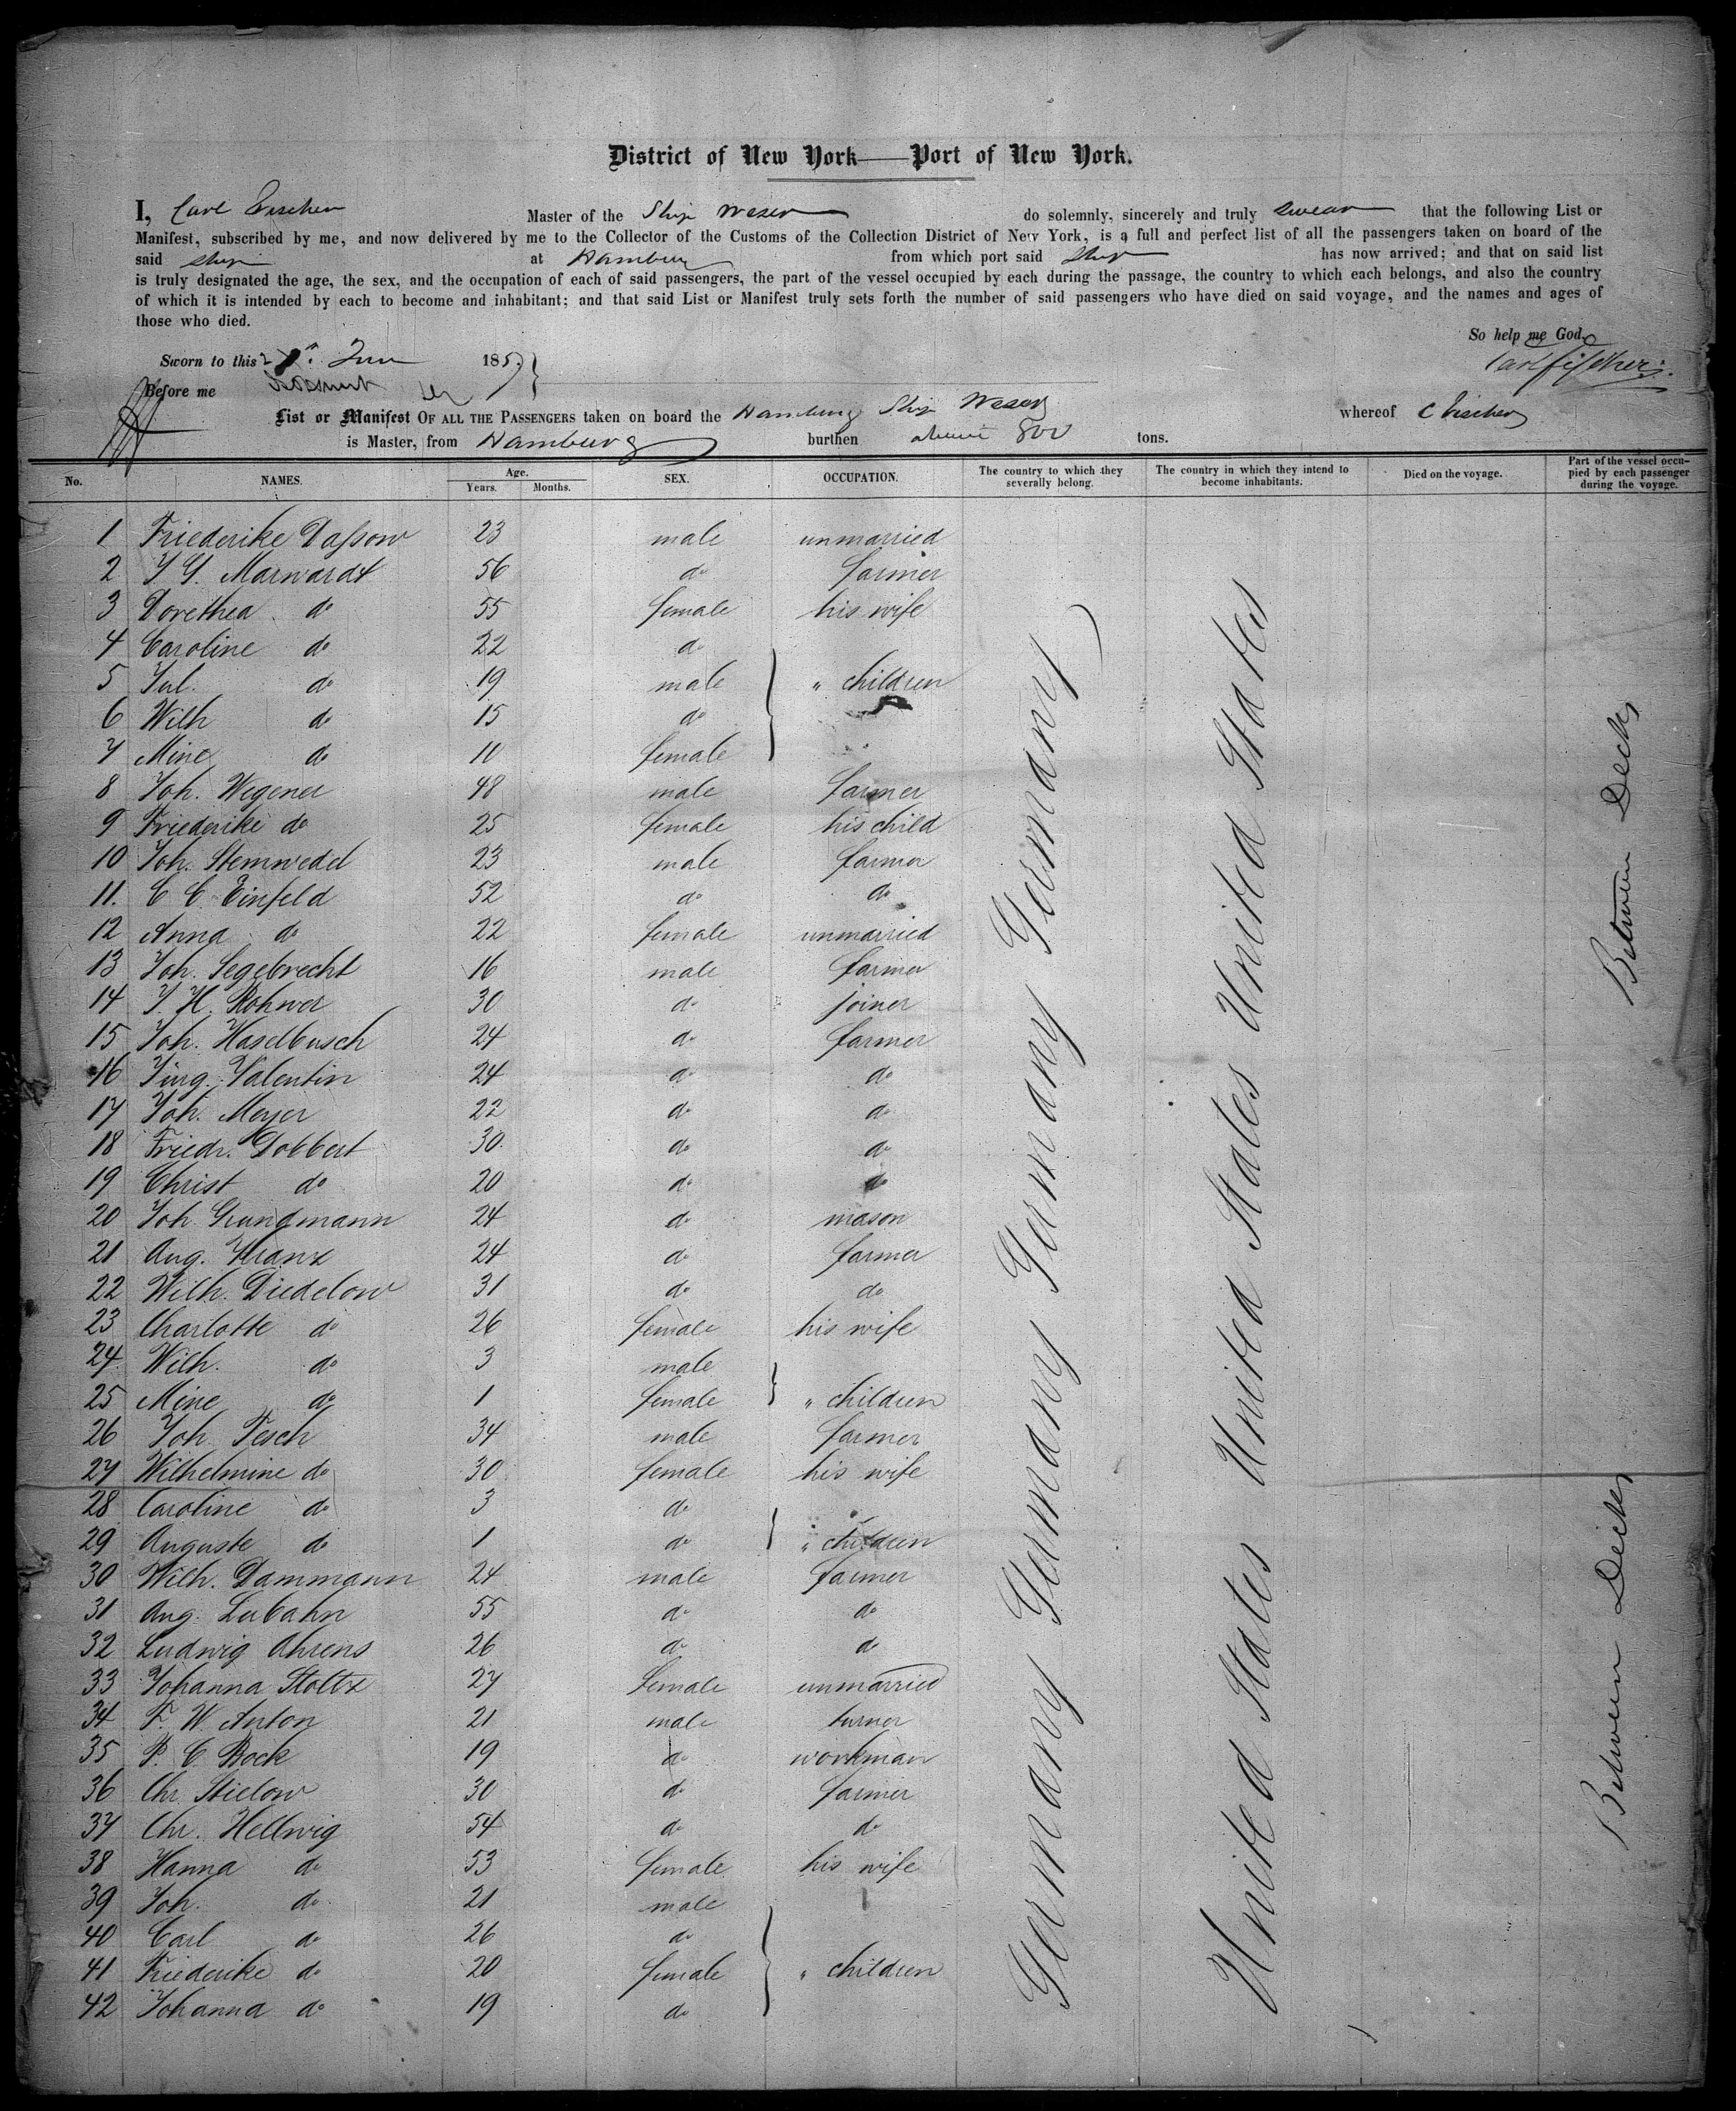 District of New York—Port of New York.
I, Carl Fischer Master of the Ship Weser do solemnly, sincerely and truly swear that the following List or
Manifest, subscribed by me, and now delivered by me to the Collector of the Customs of the Collection District of New York, is a full and perfect list of all the passengers taken on board of the
said ship at Hamburg from which port said Ship has now arrived; and that on said list
is truly designated the age, the sex, and the occupation of each of said passengers, the part of the vessel occupied by each during the passage, the country to which each belongs, and also the country
of which it is intended by each to become and inhabitant; and that said List or Manifest truly sets forth the number of said passengers who have died on said voyage, and the names and ages of
those who died.
So help me God.
Sworn to this 2 Jun 185
Carl Fischer.
Before me
List or Manifest OF ALL THE PASSENGERS taken on board the Hamburg Ship Weser whereof C Fischer
is Master, from Hamburg burthen about 800 tons.
No. NAMES. Age. Years. Months. SEX. OCCUPATION. The country to which they severally belong. The country in which they intend to become inhabitants. Died on the voyage. Part of the vessel occupied by each passenger during the voyage.
1 Friederike Daſsow 23 male unmarried
2 J G. Marwardt 56 do farmer
3 Dorethea do 55 female his wife
4 Caroline do 22 do
5 Jul. do 19 male " children
6 Wilh do 15 do
7 Mine do 10 female
8 Joh. Wegener 48 male farmer
9 Friederike do 25 female his child
10 Joh. Stemwedel 23 male farmer
11. C C Einfeld 52 do do
12 Anna do 22 female unmarried
13 Joh. Segebrecht 16 male farmer
14 J. H. Rohwer 30 do joiner
15 Joh. Haselbusch 24 do farmer
16 Jürg. Valentin 24 do do
17 Joh. Meyer 22 do do
18 Friedr. Dobbert 30 do do
19 Christ do 20 do do
20 Joh Grundmann 24 do mason
21 Aug. Kranz 24 do farmer
22 Wilh. Diedelow 31 do do
23 Charlotte do 26 female his wife
24 Wilh. do 3 male
25 Mine do 1 female " children
26 Joh Tesch 34 male farmer
27 Wilhelmine do 30 female his wife
28 Caroline do 3 do
29 Auguste do 1 do " children
30 Wilh. Dammann 24 male farmer
31 Aug. Lubahn 55 do do
32 Ludwig Ahrens 26 do do
33 Johanna Stoltz 27 female unmarried
34 F. W. Anton 21 male turner
35 P. C. Bock 19 do workman
36 Chr Stielow 30 do farmer
37 Chr. Hellwig 54 do do
38 Hanna do 53 female his wife
39 Joh. do 21 male
40 Carl do 26 do
41 Friederike do 20 female " children
42 Johanna do 19 do
Germany Germany Germany Germany Germany
United States United States United States
Between Decks Between Decks